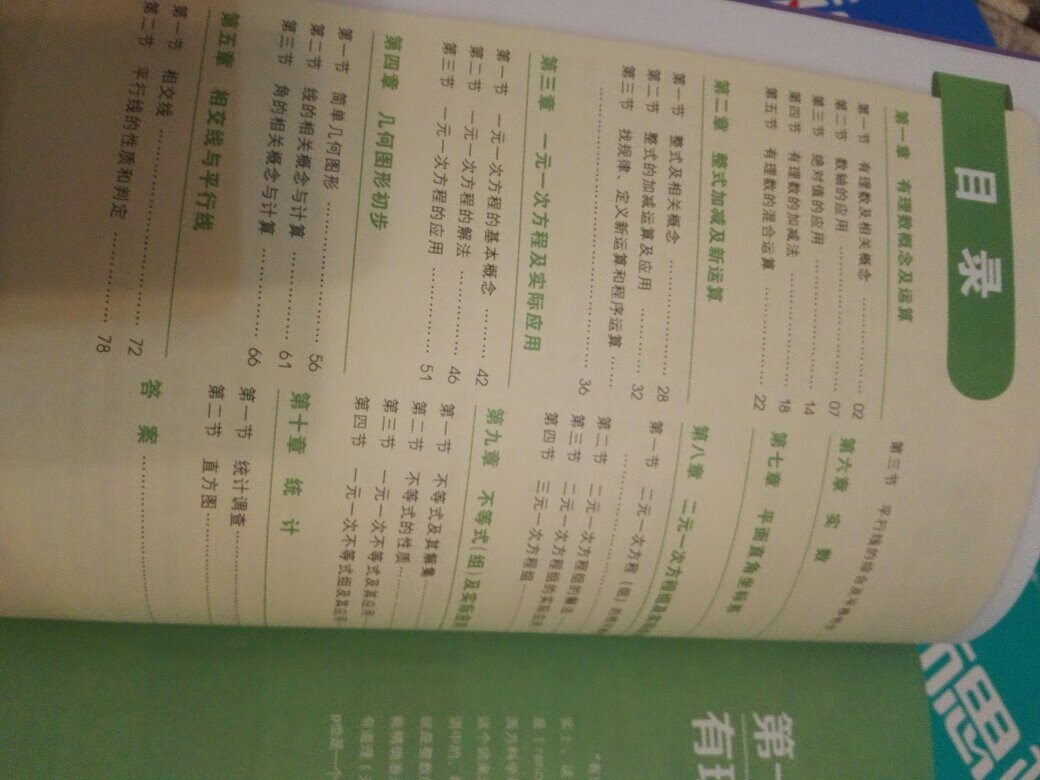 目录
第一章 有理数概念及运算
第一节 有理数及相关概念 …… 02
第二节 数轴的应用 …… 07
第三节 绝对值的应用 …… 14
第四节 有理数的加减法 …… 18
第五节 有理数的混合运算 …… 22
第二章 整式加减及新运算
第一节 整式及相关概念 …… 28
第二节 整式的加减运算及应用 …… 32
第三节 找规律、定义新运算和程序运算 ……
…… 36
第三章 一元一次方程及实际应用
第一节 一元一次方程的基本概念 …… 42
第二节 一元一次方程的解法 …… 46
第三节 一元一次方程的应用 …… 51
第四章 几何图形初步
第一节 简单几何图形 …… 56
第二节 线的相关概念与计算 …… 61
第三节 角的相关概念与计算 …… 66
第五章 相交线与平行线
第一节 相交线 …… 72
第二节 平行线的性质和判定 …… 78
第三节 平行线的综合及平移
第六章 实数
第七章 平面直角坐标系
第八章 二元一次方程组及实际
第一节 二元一次方程(组)的
第二节 二元一次方程组的解法
第三节 二元一次方程组的实际应用
第四节 三元一次方程组
第九章 不等式(组)及实际应用
第一节 不等式及其解集
第二节 不等式的性质
第三节 一元一次不等式及其应用
第四节 一元一次不等式组及其应用
第十章 统计
第一节 统计调查
第二节 直方图
答案
第一
有理
思